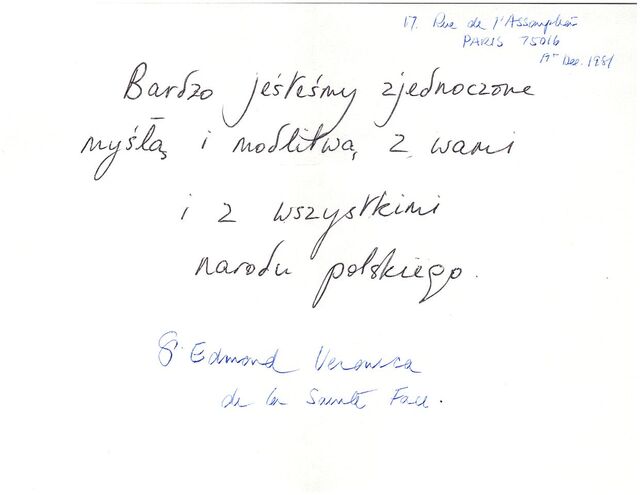 17. Rue de l'Assomption
PARIS 75016
19 Dec. 1981
Bardzo jéśteśmy zjednoczone
myślą i modlitwą z wami
i z wszystkimi
narodu polskiego.
Sr Edmond Veronica
de la Sainte Face.